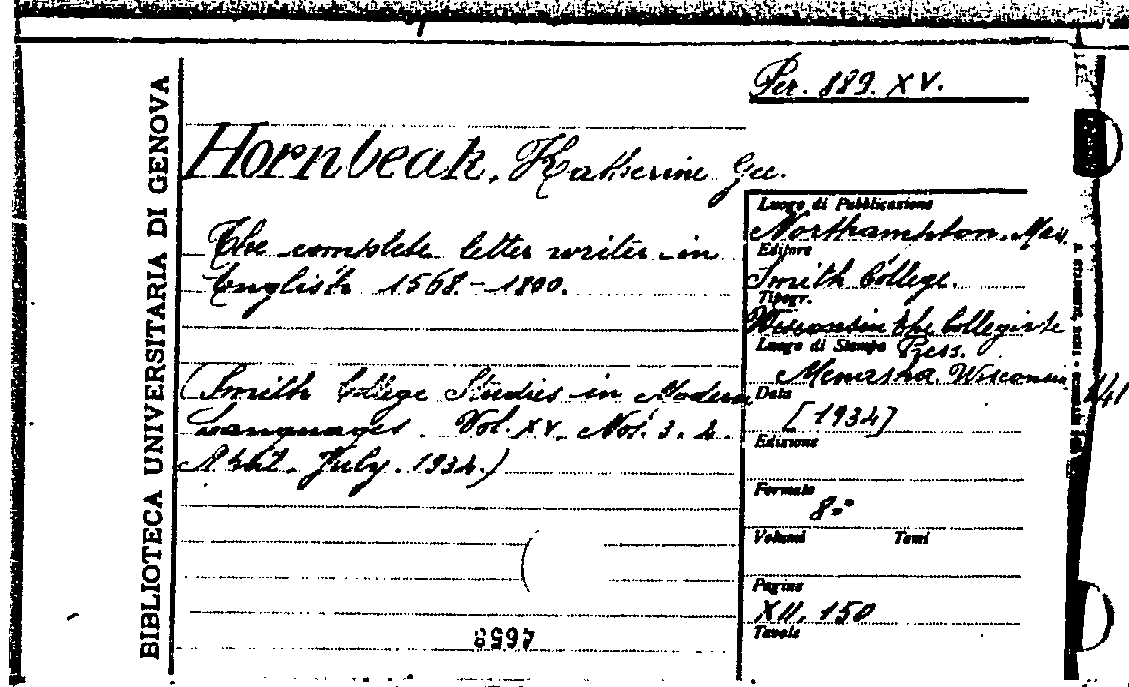 BIBLIOTECA UNIVERSITARIA DI GENOVA
Per. 889. XV.
Hornbeak, Katherine Gee.
The complete letter writer in
English 1568.-1800.
(Smith College Studies in Modern
Languages. Vol. XV. Nos. 3. 4.
April. July. 1934.)
Luogo di Pubblicazione
Northampton. Mass.
Editore
Smith College.
Tipogr.
Wisconsin the Collegiate
Press.
Luogo di Stampa
Menasha Wisconsin
Data
[1934]
Edizione
Formato
8°
Volumi Tomi
Pagine
XII, 150
Tavole